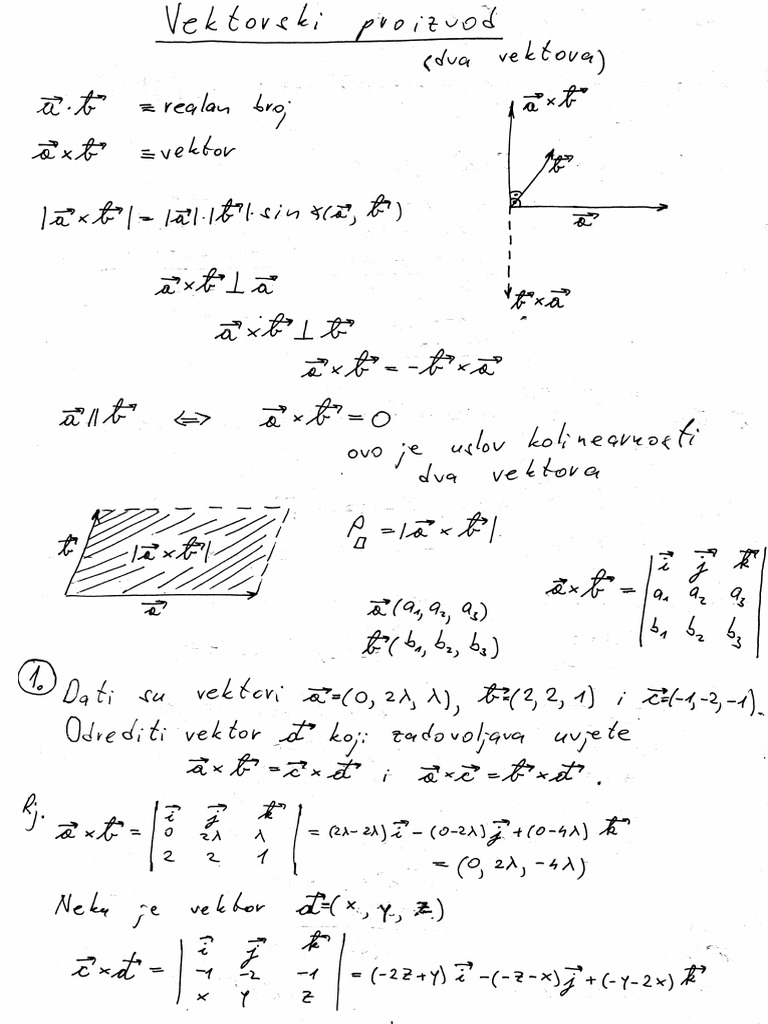 Vektorski proizvod
(dva vektora)
a⃗ · b⃗ ≡ realan broj
a⃗ × b⃗ ≡ vektor
|a⃗ × b⃗| = |a⃗|·|b⃗|· sin ∢(a⃗, b⃗)
a⃗ × b⃗
b⃗
a⃗
b⃗ × a⃗
a⃗ × b⃗ ⊥ a⃗
a⃗ × b⃗ ⊥ b⃗
a⃗ × b⃗ = - b⃗ × a⃗
a⃗ ∥ b⃗ ⇔ a⃗ × b⃗ = 0
ovo je uslov kolinearnosti
dva vektora
b⃗
|a⃗ × b⃗|
a⃗
P▱ = |a⃗ × b⃗|
a⃗ (a₁, a₂, a₃)
b⃗ (b₁, b₂, b₃)
a⃗ × b⃗ = | i⃗ j⃗ k⃗ |
| a₁ a₂ a₃ |
| b₁ b₂ b₃ |
1. Dati su vektori a⃗=(0, 2λ, λ), b⃗=(2, 2, 1) i c⃗=(-1,-2,-1).
Odrediti vektor d⃗ koji zadovoljava uvjete
a⃗ × b⃗ = c⃗ × d⃗ i a⃗ × c⃗ = b⃗ × d⃗ .
Rj.
a⃗ × b⃗ = | i⃗ j⃗ k⃗ |
| 0 2λ λ | = (2λ-2λ) i⃗ - (0-2λ) j⃗ + (0-4λ) k⃗
| 2 2 1 |
= (0, 2λ, -4λ)
Neka je vektor d⃗=(x, y, z)
c⃗ × d⃗ = | i⃗ j⃗ k⃗ |
| -1 -2 -1 | = (-2z+y) i⃗ - (-z-x) j⃗ + (-y-2x) k⃗
| x y z |